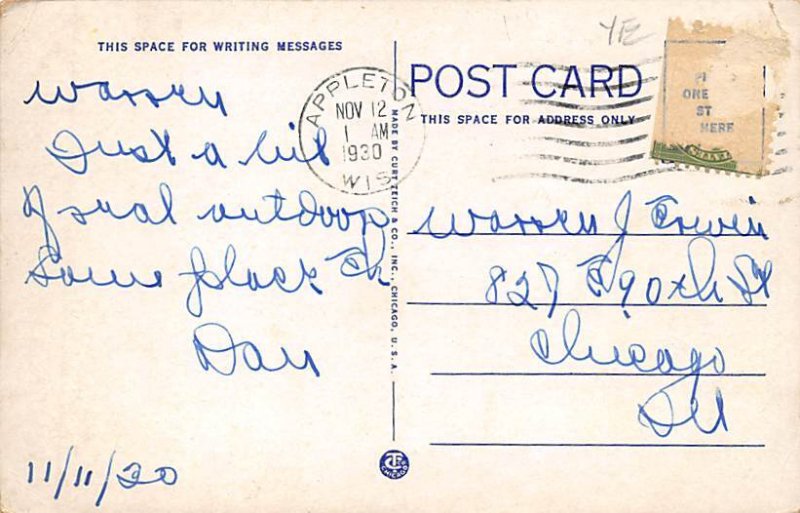 YE
THIS SPACE FOR WRITING MESSAGES
POST CARD
THIS SPACE FOR ADDRESS ONLY
APPLETON
NOV 12
1 AM
1930
WIS
ONE
ST
HERE
Warren
Just a bit
of real outdoor
Some place Eh
Dan
11/11/30
MADE BY CURT TEICH & CO., INC., CHICAGO, U.S.A.
Warren J Erwin
827 E 90th St
Chicago
Ill
CHICAGO